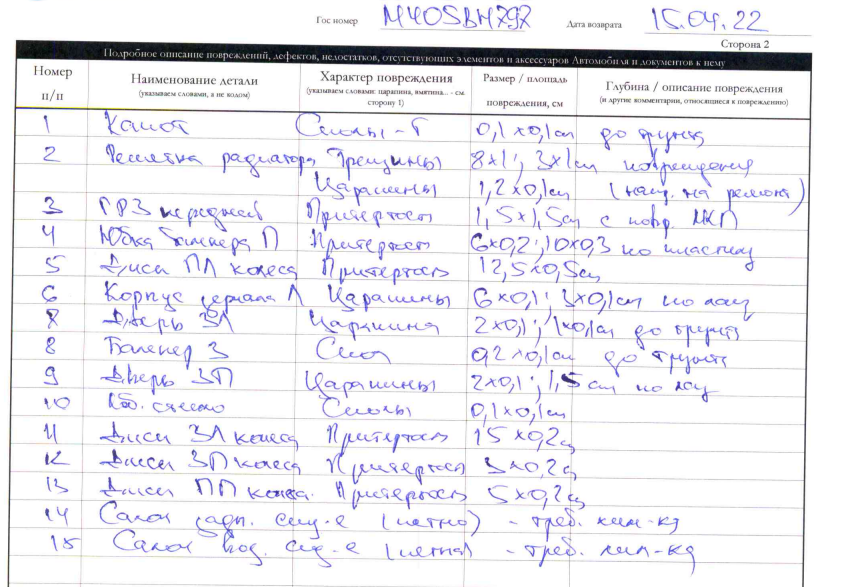 Гос номер М405ВН797 Дата возврата 15.04.22
Сторона 2
Подробное описание повреждений, дефектов, недостатков, отсутствующих элементов и аксессуаров Автомобиля и документов к нему
Номер п/п Наименование детали (указываем словами, а не кодом) Характер повреждения (указываем словами: царапина, вмятина... - см. сторону 1) Размер / площадь повреждения, см Глубина / описание повреждения (и другие комментарии, относящиеся к повреждению)
1 Капот Сколы - Г 0,1х0,1см до грунта
2 Решетка радиатора Трещины 8х1; 3х1см повреждения
Царапины 1,2х0,1см ( на ремонт)
3 ГРЗ передней Притертость 1,5х1,5см с повр. ЛКП
4 Юбка бампера П Притертость 6х0,2; 10х0,3 по пластику
5 Диск ПЛ колеса Притертость 12,5х0,5см
6 Корпус зеркала Л Царапины 6х0,1; 3х0,1см по лку
7 Дверь ЗЛ Царапина 2х0,1; 1х0,1см до грунта
8 Бампер З Скол 0,2х0,1см до грунта
9 Дверь ЗП Царапины 2х0,1; 1,5см по лку
10 Лоб. стекло Сколы 0,1х0,1см
11 Диск ЗЛ колеса Притертость 15х0,2см
12 Диск ЗП колеса Притертость 3х0,2см
13 Диск ПП колеса Притертость 5х0,2см
14 Салон задн. сид-е (пятно) - треб. хим-ка
15 Салон вод. сид-е (пятна) - треб. хим-ка